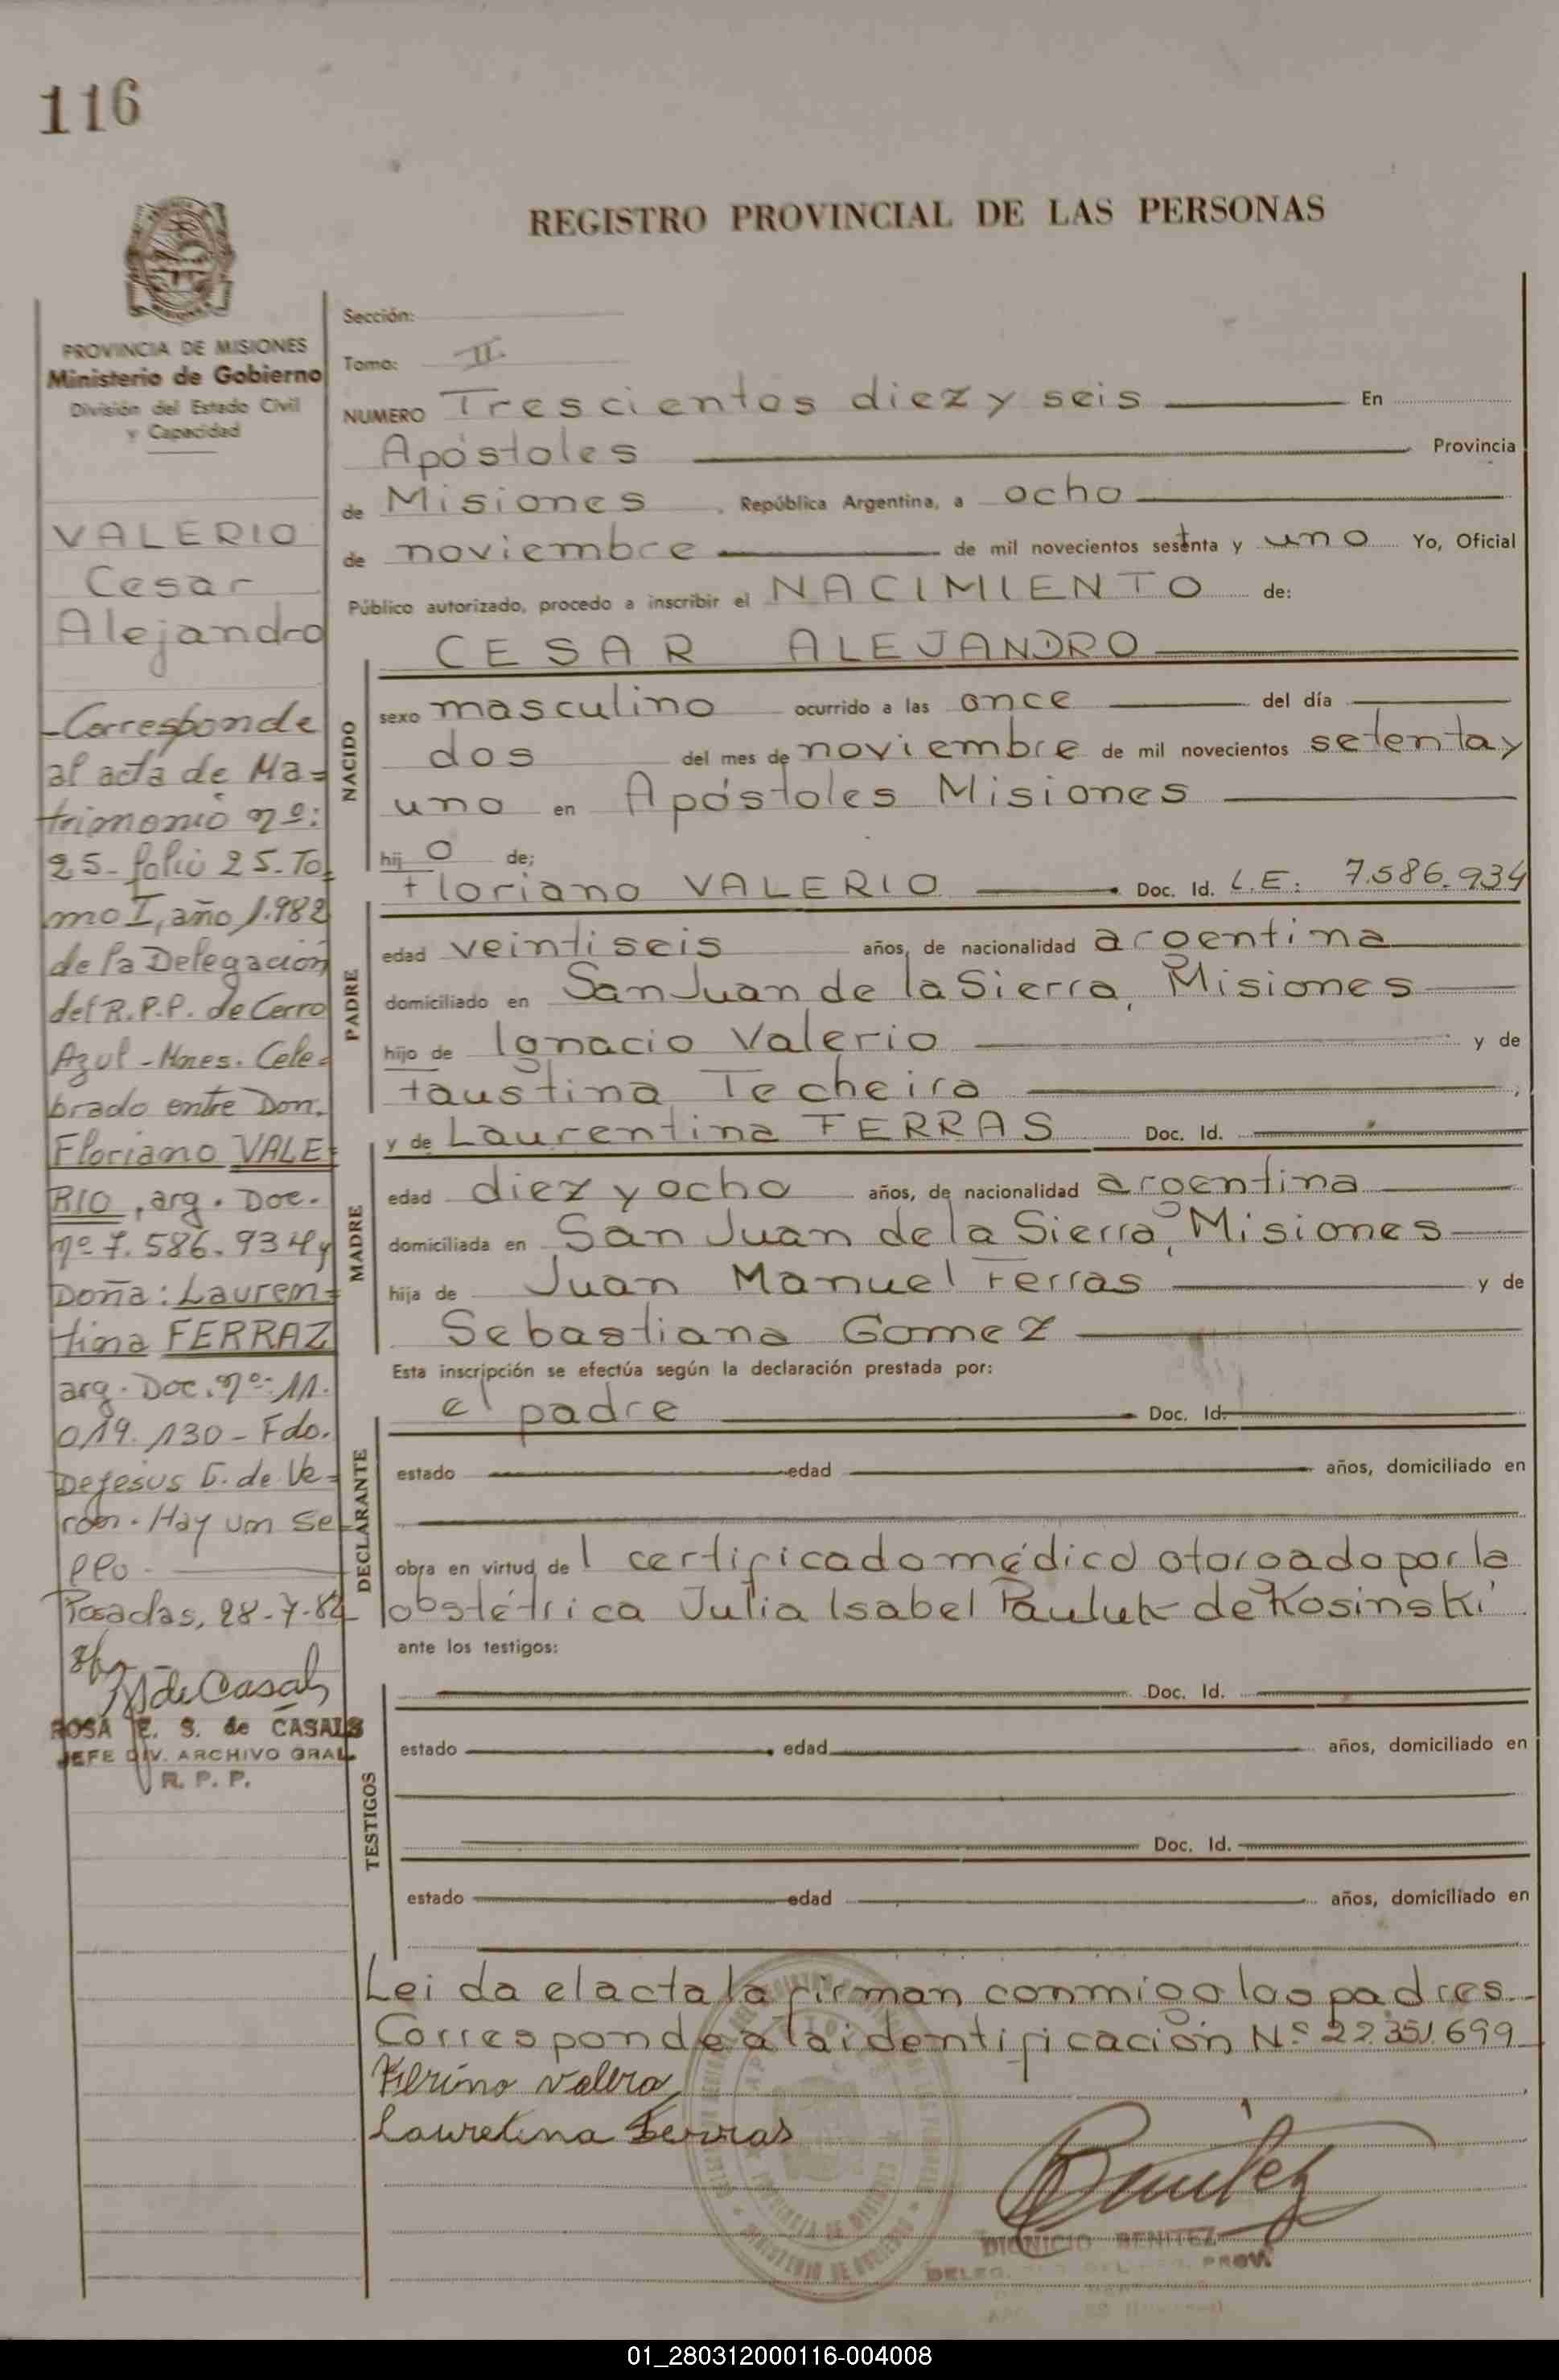 116
REGISTRO PROVINCIAL DE LAS PERSONAS
PROVINCIA DE MISIONES
Ministerio de Gobierno
División del Estado Civil
y Capacidad
VALERIO
Cesar
Alejandro
-Corresponde
al acta de Ma=
trimonio nº:
25- folio 25. To=
mo I, año 1.982
de la Delegación
del R.P.P. de Cerro
Azul - Mnes. Cele=
brado entre Don.
Floriano VALE=
RIO, arg. Doc.
nº 7.586.934 y
Doña: Lauren=
tina FERRAZ
arg. Doc. nº: 11.
019.130 - Fdo.
Dejesus G. de Ve=
ron. Hay un Se=
llo.
Posadas, 28-7-82
ROSA E. S. de CASALS
JEFE DIV. ARCHIVO GRAL
R. P. P.
Sección:
Tomo: II.
NUMERO Trescientos diez y seis En
Apóstoles Provincia
de Misiones , República Argentina, a ocho
de noviembre de mil novecientos sesetnta y uno Yo, Oficial
Público autorizado, procedo a inscribir el NACIMIENTO de:
CESAR ALEJANDRO
NACIDO
sexo masculino ocurrido a las once del día
dos del mes de noviembre de mil novecientos setenta y
uno en Apóstoles Misiones
hij o de;
Floriano VALERIO Doc. Id. L.E: 7.586.934
PADRE
edad veintiseis años, de nacionalidad argentina
domiciliado en San Juan de la Sierra, Misiones
hijo de Ignacio Valerio y de
Faustina Techeira
y de Laurentina FERRAS Doc. Id.
MADRE
edad diez y ocho años, de nacionalidad argentina
domiciliada en San Juan de la Sierra, Misiones
hija de Juan Manuel Ferras y de
Sebastiana Gomez
Esta inscripción se efectúa según la declaración prestada por:
el padre Doc. Id.
DECLARANTE
estado edad años, domiciliado en
obra en virtud de l certificado médico otorgado por la
obstétrica Julia Isabel Pauluk de Kosinski
ante los testigos:
Doc. Id.
TESTIGOS
estado edad años, domiciliado en
Doc. Id.
estado edad años, domiciliado en
Leida el acta la firman conmigo los padres.
Corresponde a la identificación Nº 22.351.699
Lauretina Ferras
Benitez
DIONICIO BENITEZ
01_280312000116-004008